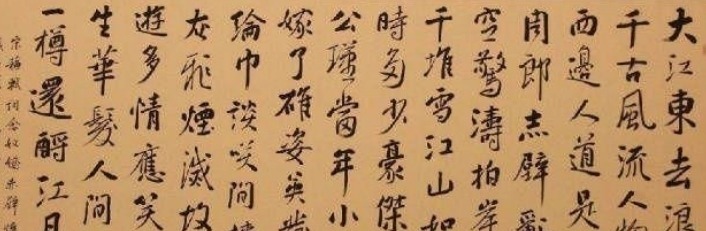 大江東去浪
千古風流人物
西邊人道是
周郎赤壁亂
空驚濤拍岸
千堆雪江山如
時多少豪傑
公瑾當年小
嫁了雄姿英發
綸巾談笑間
灰飛煙滅故
遊多情應笑
生華髮人間
一樽還酹江月
宋蘇軾詞念奴嬌赤壁懷